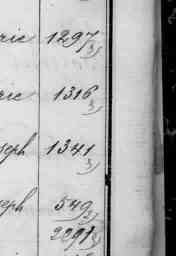 ric 1297
3)
ric 1316
3)
seph 1341
3)
seph 549
3)
2291
3)